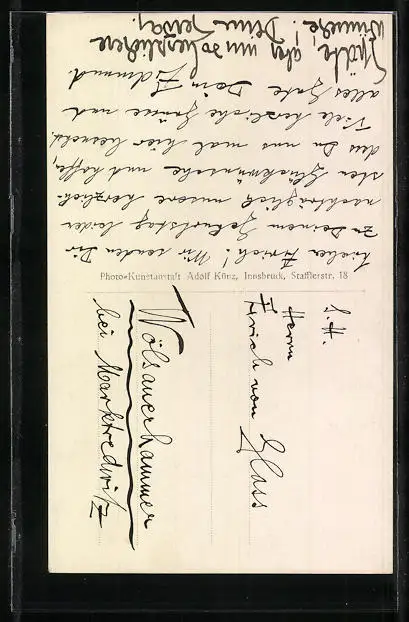 Lieber Ulrich! Wir senden Dir
zu Deinem Geburtstag leider
nachträglich unsere herzlich
sten Glückwünsche und hoffen,
dass Du uns mal hier besuchst.
Viele herzliche Grüsse und
alles Gute Dein
Späte, aber um so herzlichere
Wünsche! Deine
Photo-Kunstanstalt Adolf Künz, Innsbruck, Stafflerstr. 18
S. H.
Herrn
Ulrich von Glass
Wölsauerhammer
bei Marktredwitz